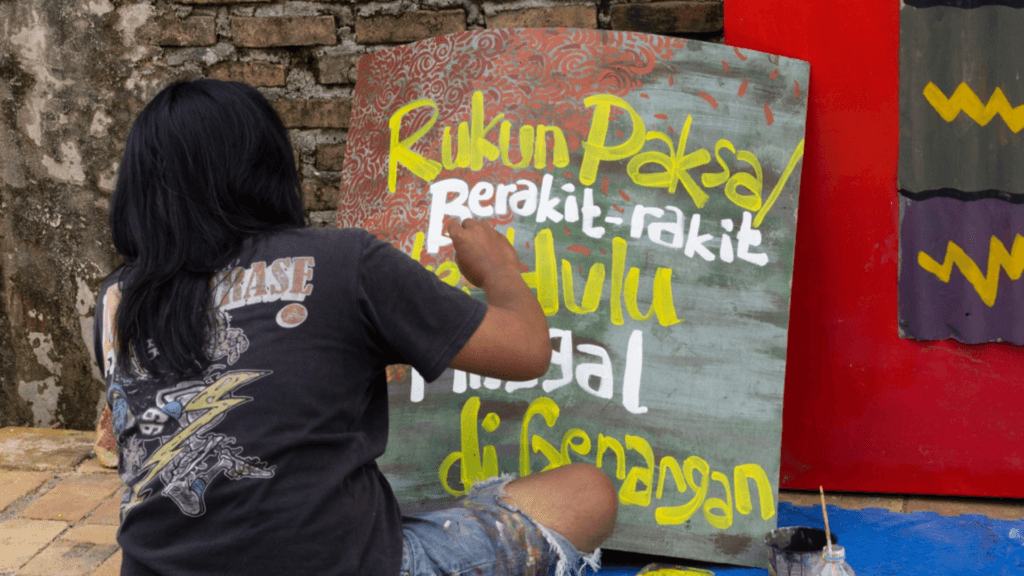 Rukun Paksa/
Berakit-rakit
dulu
di Genangan
RASE